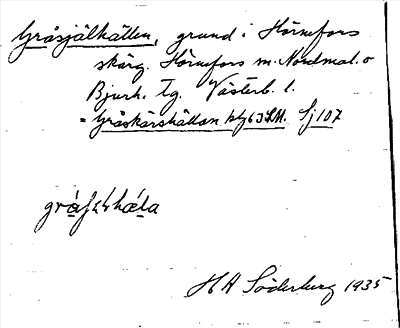 Gråsjälhällen, grund i Hörnefors
skärg. Hörnefors sn. Nordmal. o
Bjurh. tg. Västerb. l.
= Gråskärshällan blg 63 SM. Sj 107
H A Söderberg 1935